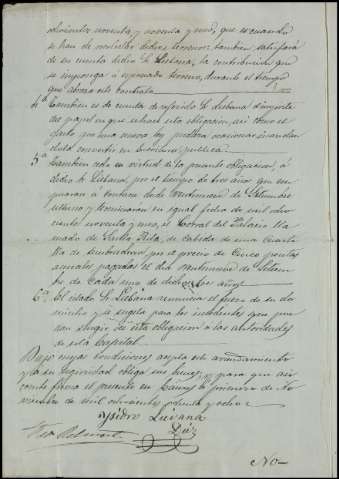 ochocientos noventa y noventa y uno, que es cuando
se han de recolectar dichos terrenos: tambien satisfará
de su cuenta dicho Sr. Liébana, la contribucion que
se imponga á expresado terreno, durante el tiempo
que abraza este contrato.
4ª Tambien es de cuenta de referido Sr. Liébana el importe
del papel en que se hace esta obligacion, asi como el
gasto que una nueva ley pudiera ocasionar mandan
dola convertir en escritura pública.
5ª Tambien cede en virtud de la presente obligacion, á
dicho Sr. Liébana, por el tiempo de tres años que em
pezarán á contarse desde veintinueve de Setiembre
último y terminarán en igual fecha de mil ocho
cientos noventa y uno, el Corral del Palacio lla
mado de de cabida de una cuarti
lla de sembradura por el precio de Cinco pesetas
anuales pagadas el dia veintinueve de Setiem
bre de cada uno de dichos años.
6ª El citado Sr. Liébana renuncia el fuero de su do
micilio y se sujeta para los incidentes que pue
dan surgir de esta obligacion á las autoridades
de esta Capital.
Bajo cuyas condiciones acepta este arrendamiento
y á su seguridad obliga sus bienes, y para que asi
conste firmo el presente en á primero de No
viembre de mil ochocientos ochenta y ocho.
Ysidro Liévana
Diz
No-